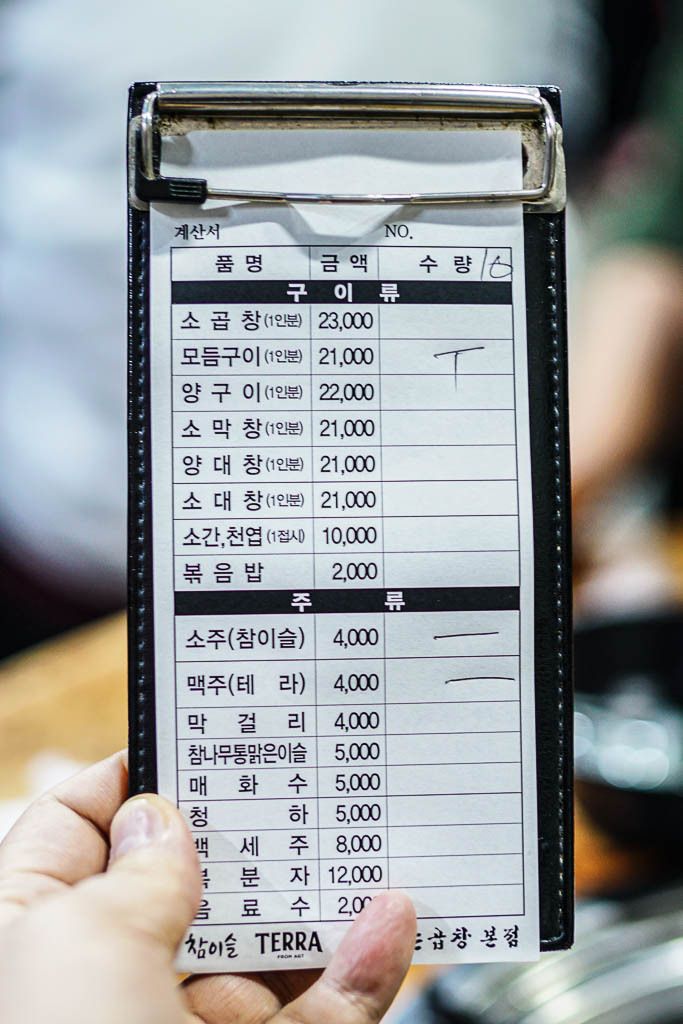 계산서 NO.
품명 금액 수량 10
구이류
소곱창(1인분) 23,000
모듬구이(1인분) 21,000 T
양구이(1인분) 22,000
소막창(1인분) 21,000
양대창(1인분) 21,000
소대창(1인분) 21,000
소간,천엽(1접시) 10,000
볶음밥 2,000
주류
소주(참이슬) 4,000 一
맥주(테라) 4,000 一
막걸리 4,000
참나무통맑은이슬 5,000
매화수 5,000
청하 5,000
백세주 8,000
복분자 12,000
음료수 2,00
참이슬 TERRA 곱창 본점
FROM AGT